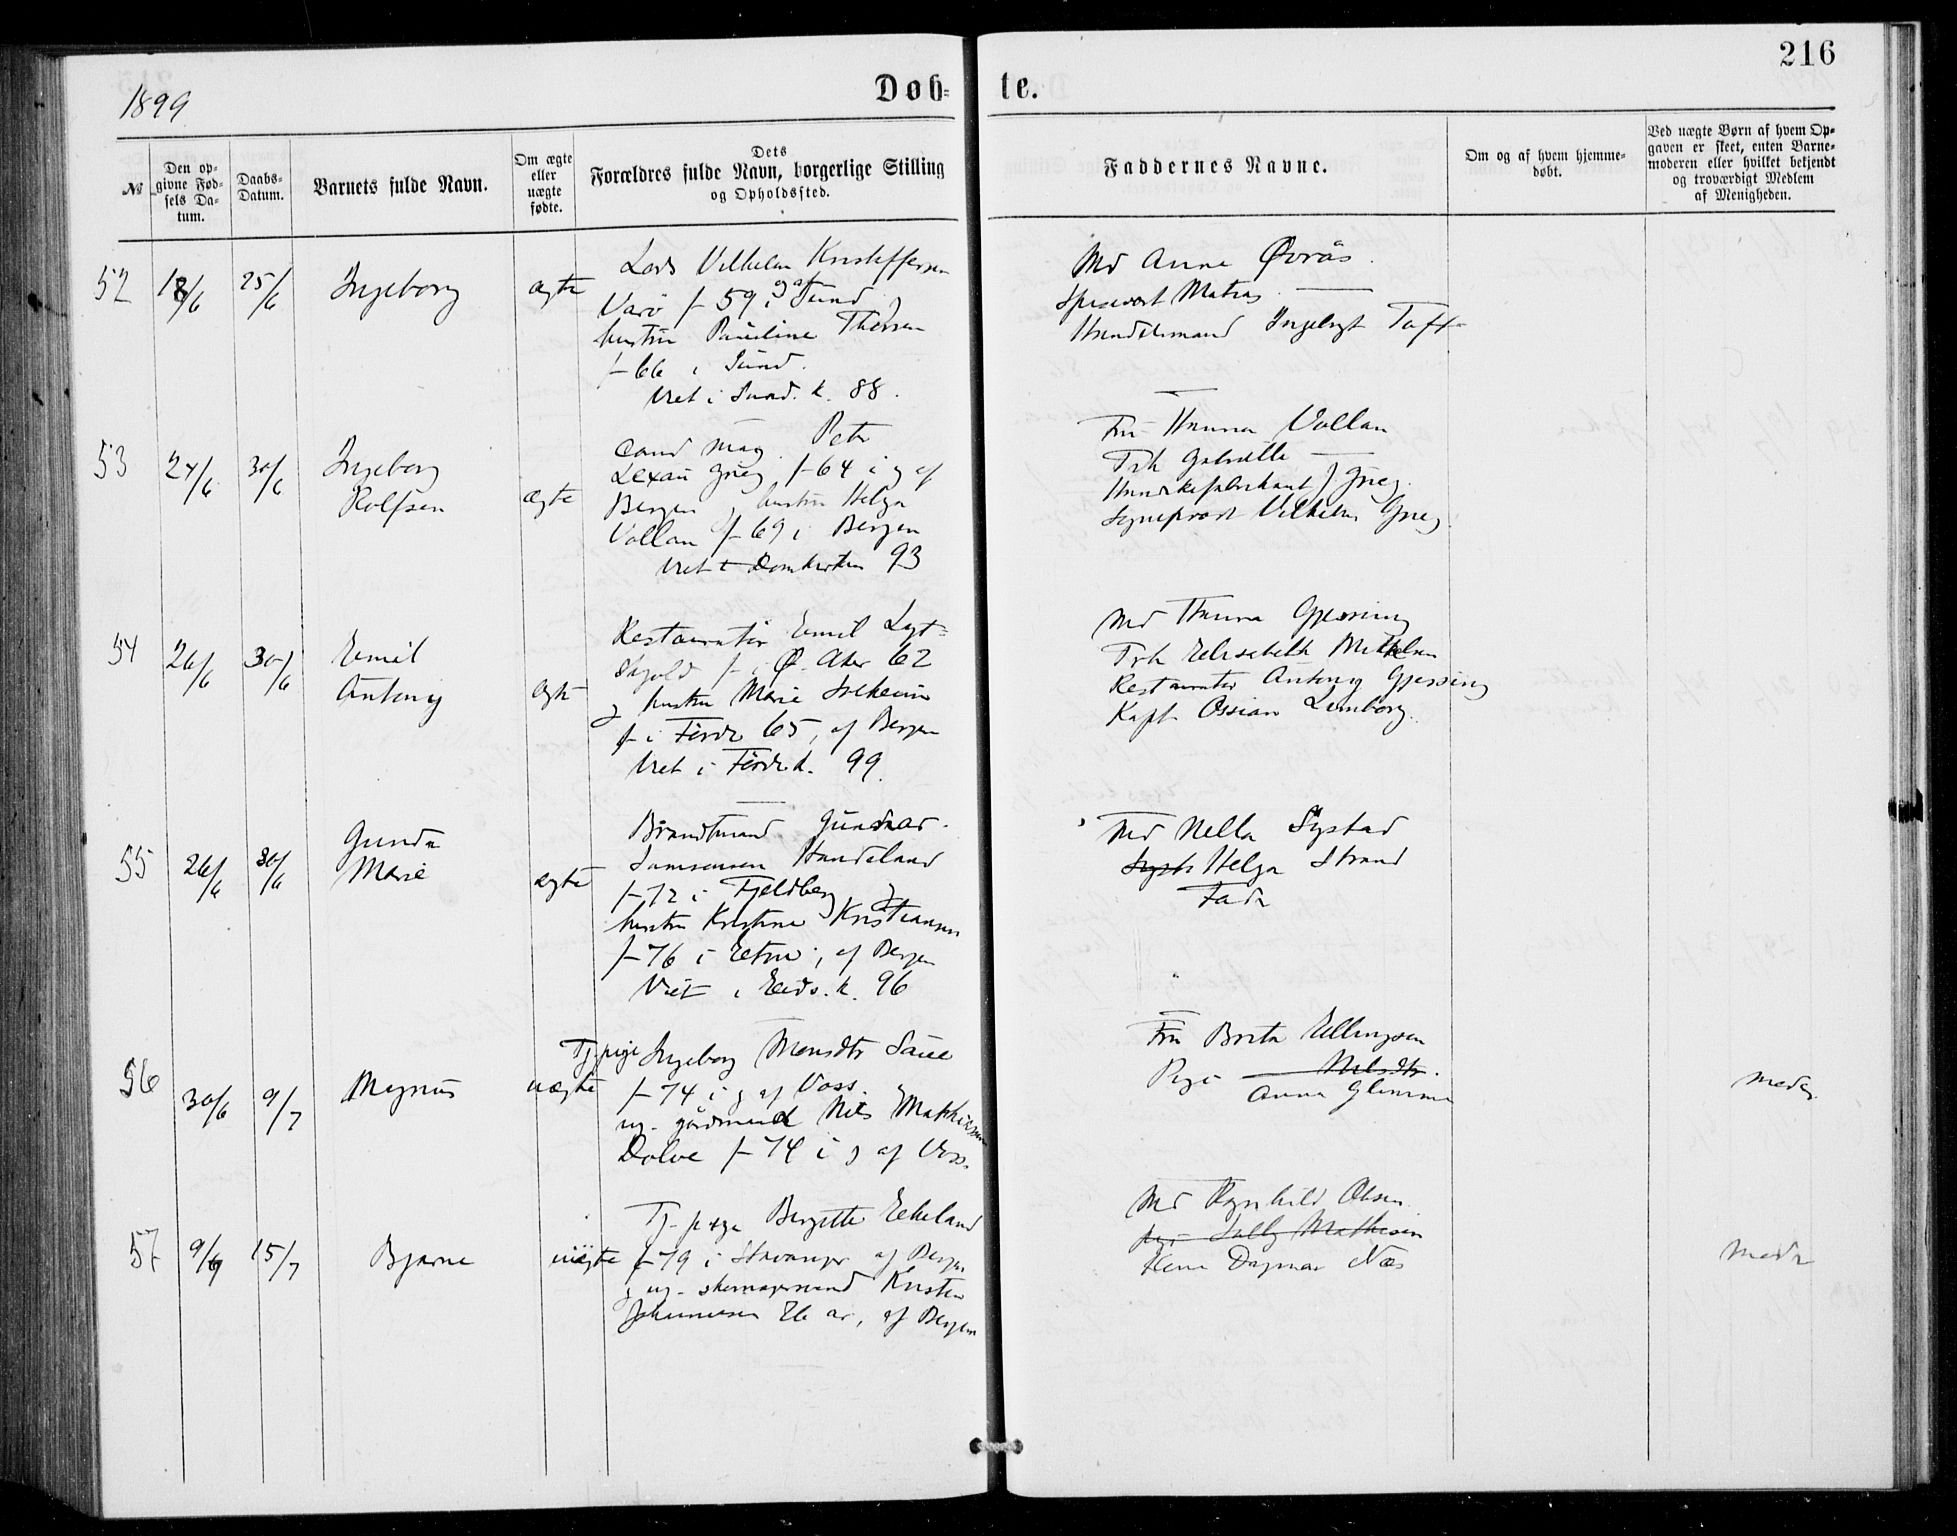 216
1899
Døb-
te.
№
Den opgivne Fødsels Datum.
Daabs-Datum.
Barnets fulde Navn.
Om ægte eller uægte fødte.
Dets
Forældres fulde Navn, borgerlige Stilling
og Opholdssted.
Faddernes Navne.
Om og af hvem hjemmedøbt.
Ved uægte Børn af hvem Opgaven er skeet, enten Barnemoderen eller hvilket bekjendt og troværdigt Medlem af Menigheden.
52 18/6 25/6 Ingeborg ægte
Lars Vilhelm Kristoffersen
Varø f 59 i g af Sund g
hustru Pauline Thorsen
f 66 i Sund.
Viet i Sund. k. 88.
Md Anna Øvrås
Spisevert Matias —
Handelsmand Ingebrigt Toft
53 24/6 30/6 Ingeborg
Rolfsen ægte
Cand mag. Peter
Lexau Grieg f 64 i g af
Bergen g hustru Helga
Vollan f 69 i Bergen
Viet i Domkirken 93
Fru Hanna Vollan
Frk Gabrielle —
J Grieg.
Vilhelm Grieg
54 26/6 30/6 Emil
Antony ægte
Restauratør Emil
f i Ø. Aker 62
g hustru Marie Solheim
f i Førde 65, af Bergen
Viet i Førde k. 99.
Md Hanna Gjessing
Frk Elisabeth
Restauratør Antony Gjessing
Kapt. Ossian Limborg.
55 26/6 30/6 Gunda
Marie ægte
Brandmand Gunnar
Samsonsen Handeland
f 72 i Fjeldberg g
hustru Kristine Kristiansen
f 76 i Etne, af Bergen
Viet i Eids. k. 96
Md Nella Systad
Helga Strand
Fadr
56 30/6 9/7 Magnus uægte
Tj.pige Ingeborg Monsdtr Saue
f 74 i g af Voss. g
ug. gårdmand Nils Mathisen
Dolve f 74 i g af Voss.
Fru Brita Ellingsen
Pige — Nilsdtr.
Anna Glimme
Moder
57 9/6 15/7 Bjarne uægte
Tj. pige Bergitte Eikeland
f 79 i Stavanger af Bergen
g ug. skomagersvend Kristen
Johannesen 26 år, af Bergen
Md Ragnhild Olsen
pige Sally Mathisen
Dagmar Næs
Moder